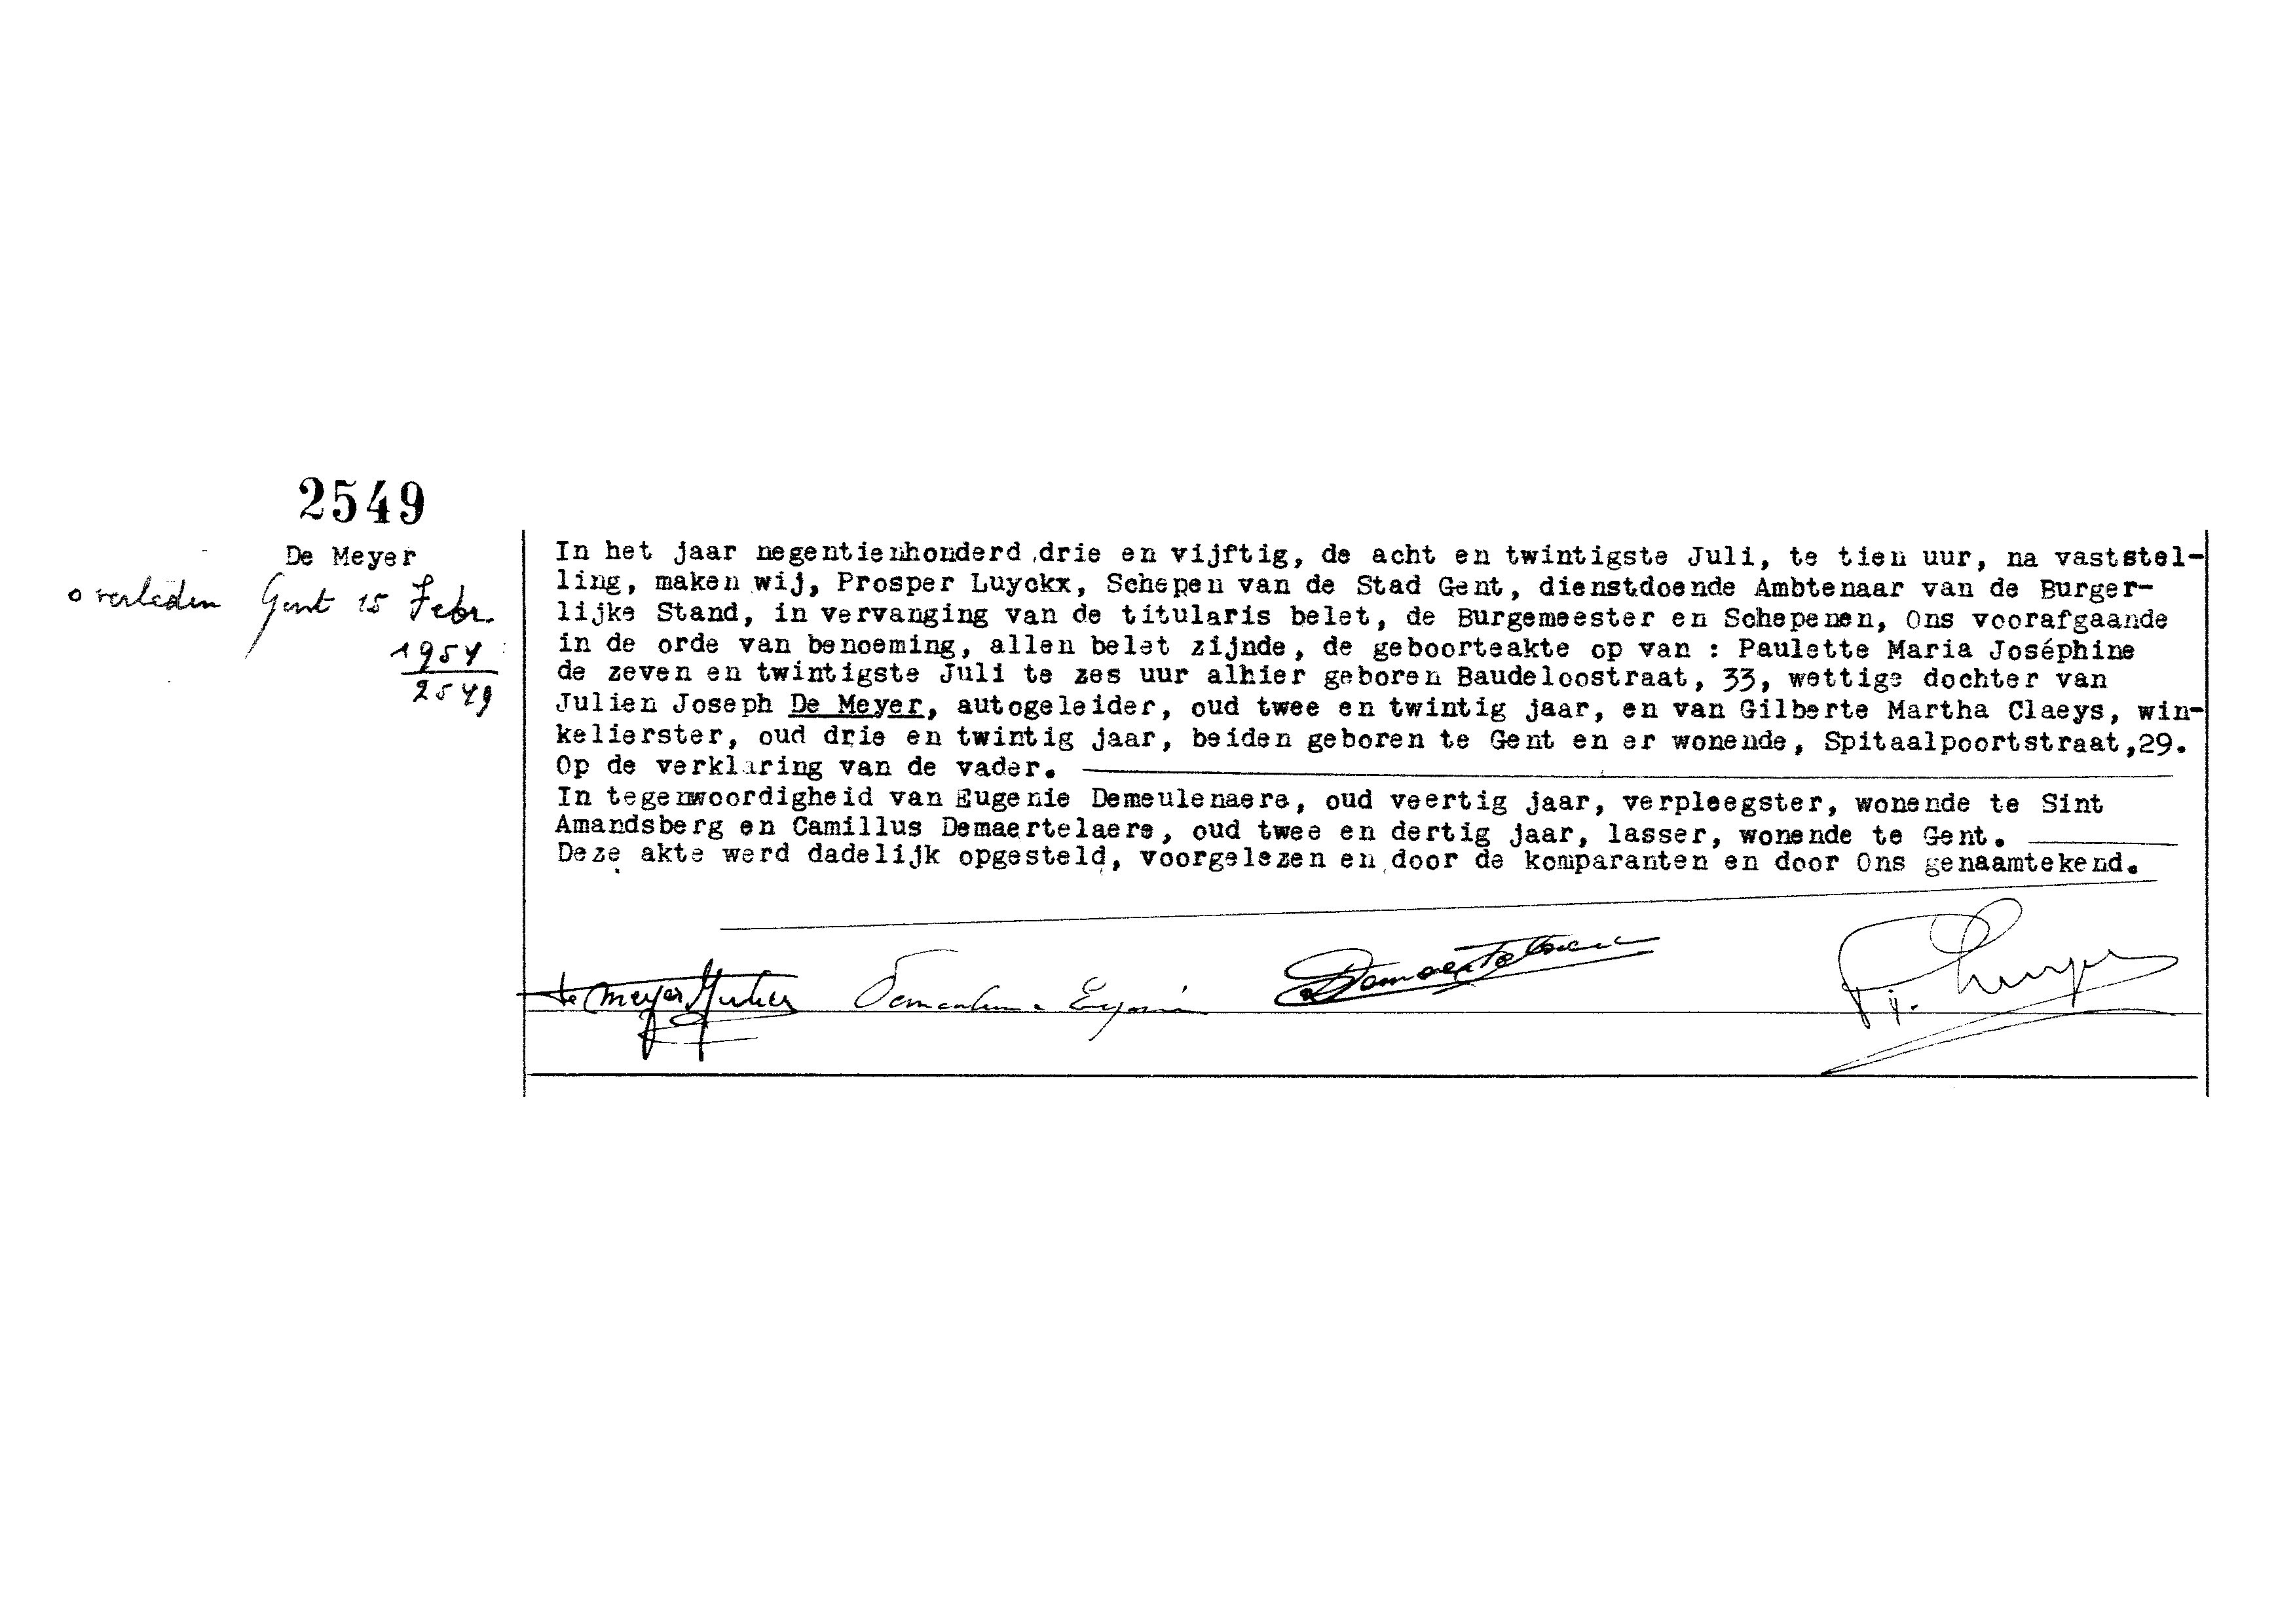 2549
De Meyer
overleden Gent 15 Febr.
1954
2549
In het jaar negentienhonderd drie en vijftig, de acht en twintigste Juli, te tien uur, na vaststel-
ling, maken wij, Prosper Luyckx, Schepen van de Stad Gent, dienstdoende Ambtenaar van de Burger-
lijke Stand, in vervanging van de titularis belet, de Burgemeester en Schepenen, Ons voorafgaande
in de orde van benoeming, allen belet zijnde, de geboorteakte op van : Paulette Maria Joséphine
de zeven en twintigste Juli te zes uur alhier geboren Baudeloostraat, 33, wettige dochter van
Julien Joseph De Meyer, autogeleider, oud twee en twintig jaar, en van Gilberte Martha Claeys, win-
kelierster, oud drie en twintig jaar, beiden geboren te Gent en er wonende, Spitaalpoortstraat,29.
Op de verklaring van de vader.
In tegenwoordigheid van Eugenie Demeulenaere, oud veertig jaar, verpleegster, wonende te Sint
Amandsberg en Camillus Demaertelaere, oud twee en dertig jaar, lasser, wonende te Gent.
Deze akte werd dadelijk opgesteld, voorgelezen en door de komparanten en door Ons genaamtekend.
de Meyer